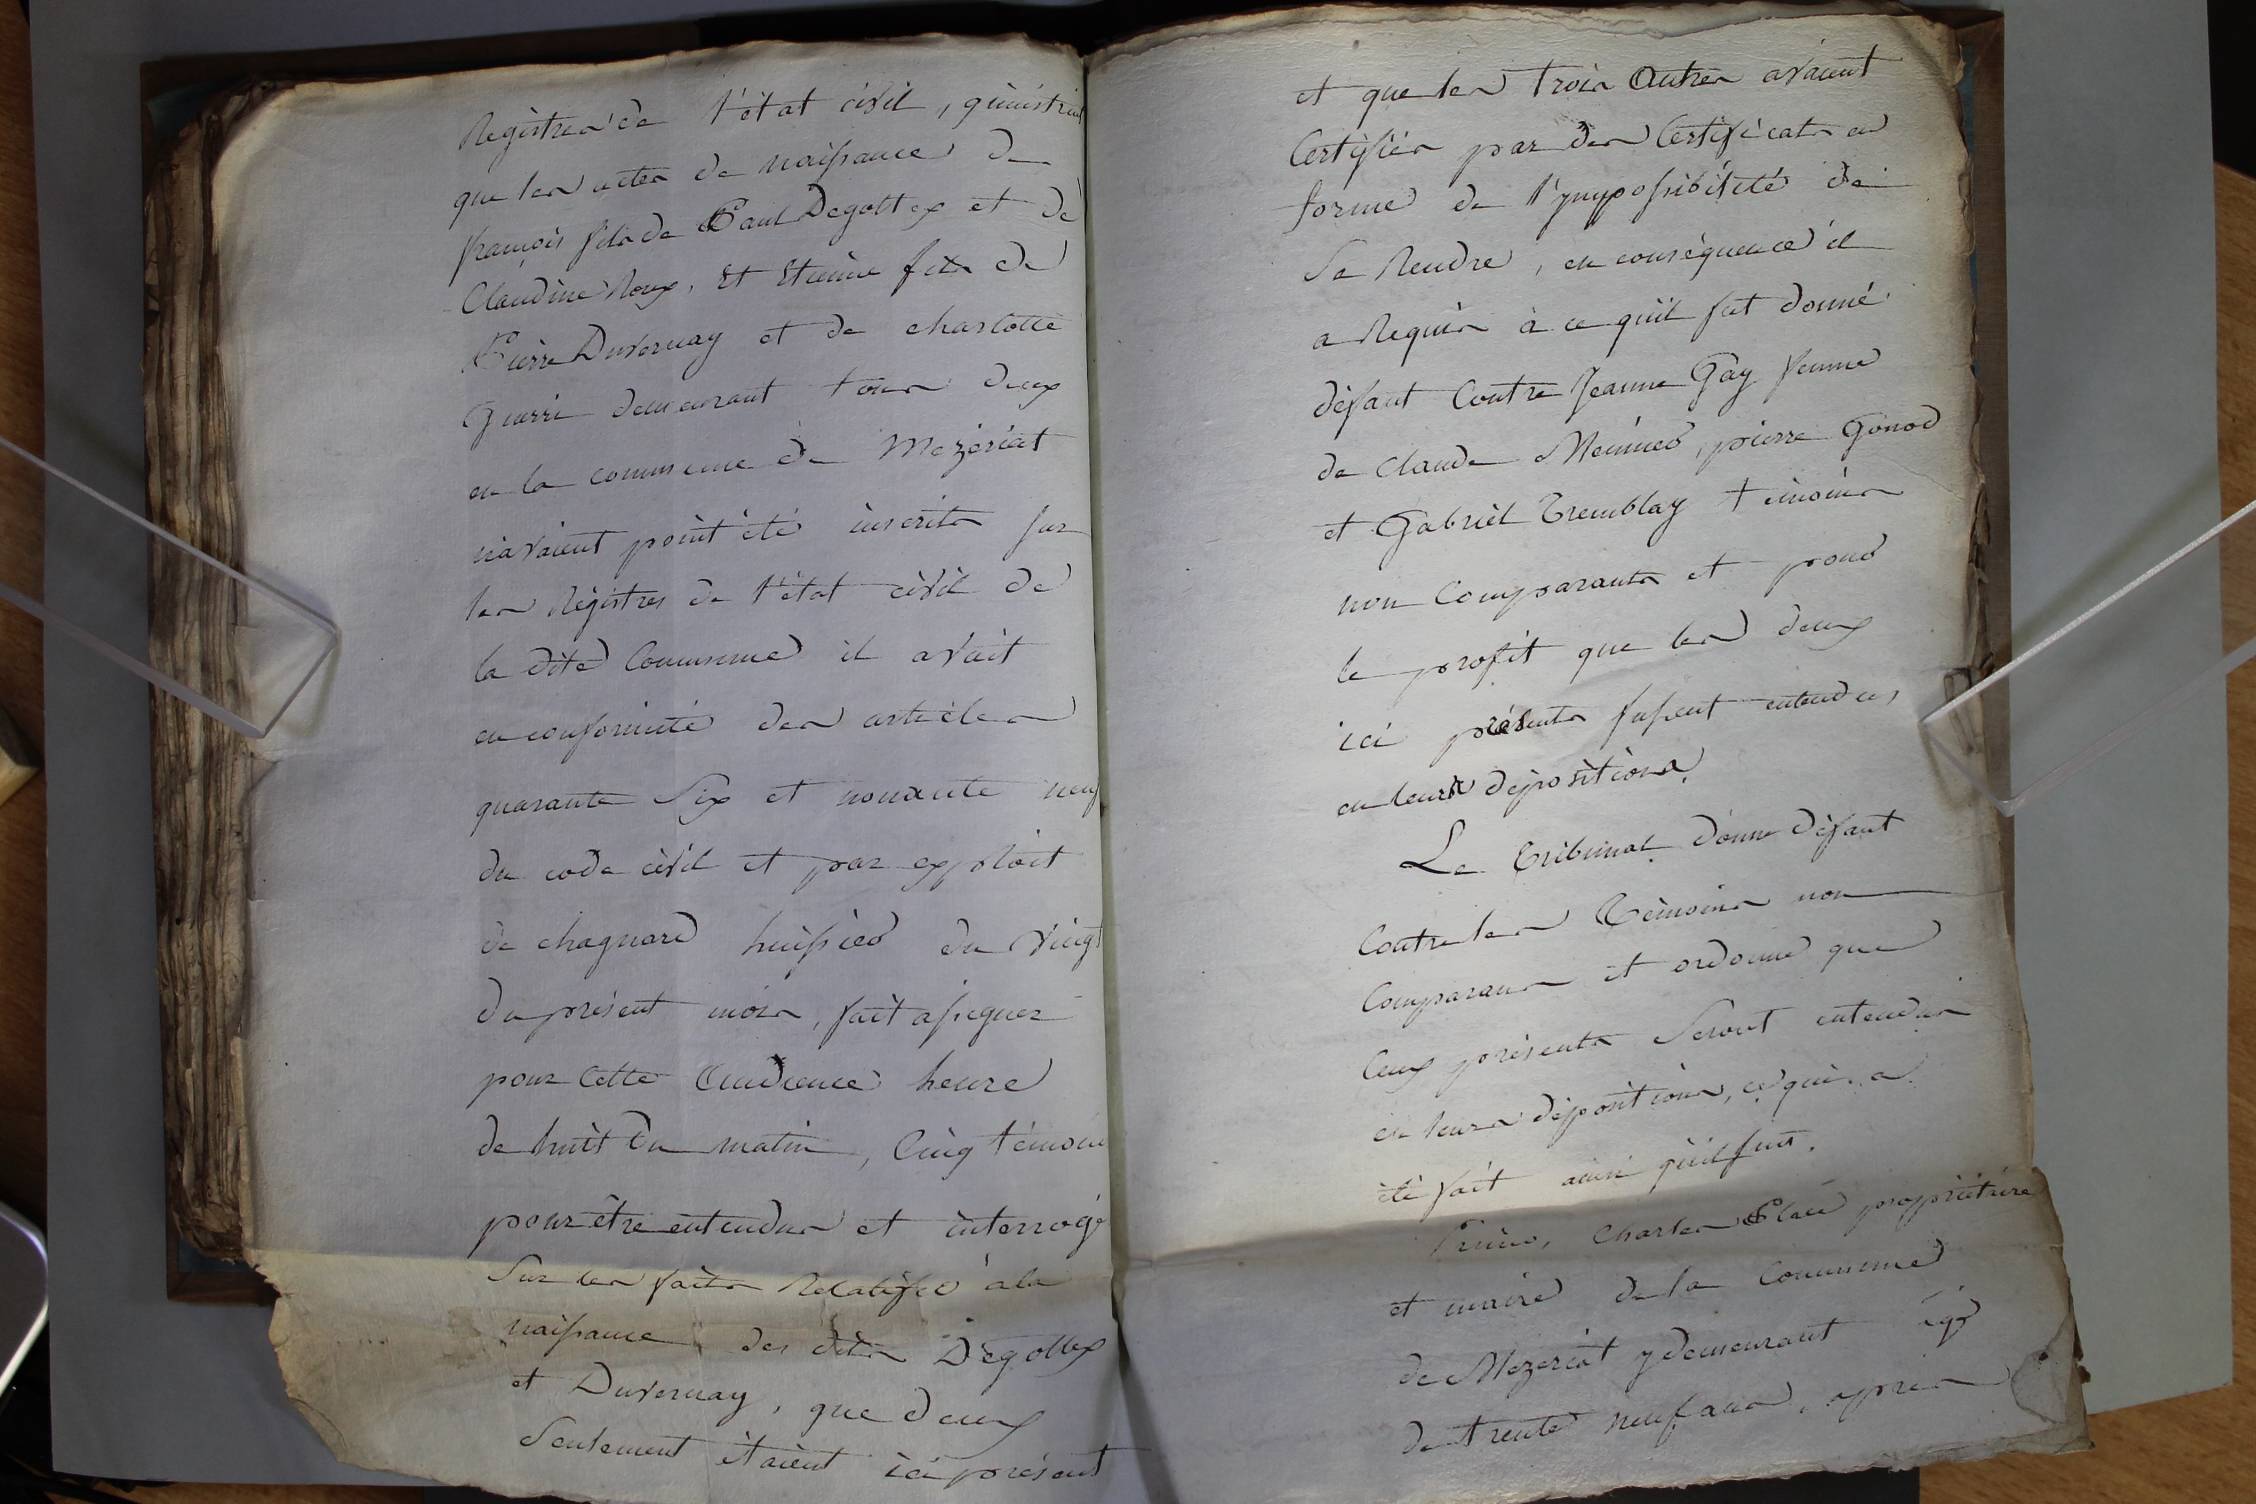 Registres de l'état civil, qu'instruit
que les actes de naissance de
françois fils de Paul Degottex et de
Claudine Roux, Et Etienne fils de
Pierre Duvernay et de charlotte
Guerri demeurant tous deux
en la commune de Mézériat
n'avaient point été inscrits sur
les Régistres de l'état civil de
la dite Commune il avait
en conformité des articles
quarante Six et nonante neuf
du code civil et par exploit
de chagnard huissier du vingt
du présent mois, fait assigner
pour Cette Audience heure
de huit du matin, Cinq témoins
pour être entendus et interrogé
Sur les faits Relatifs à la
naissance des dits Dégottex
et Duvernay, que deux
Seulement étaient ici présent
et que les trois Autres avaient
Certifiés par des Certificats en
forme de l'ympossibilité de
Se Rendre, en conséquence il
a Requis à ce qu'il fut donné
défaut Contre Jeanne Gay femme
de Claude Meunier, pierre Gonod
et Gabriel Tremblay témoins
non Comparants et pour
le profit que les deux
ici présents fussent entendus
en leurs dépositions.
Le Tribunal donne défaut
Contre les Témoins non
Comparans et ordonne que
Ceux présents Seront entendus
en leurs dépositions, ce qui a
été fait ainsi qu'il suit.
Primo, Charles Placé propriétaire
et maire de la Commune
de Mezeriat y demeurant âgé
de trente neuf ans, après